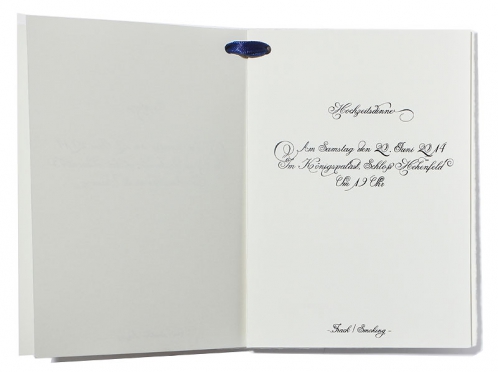 Hochzeitsdinner
Am Samstag den 22. Juni 2014
Im Königspalast, Schloß Hohenfeld
Um 19 Uhr
- Frack / Smoking -